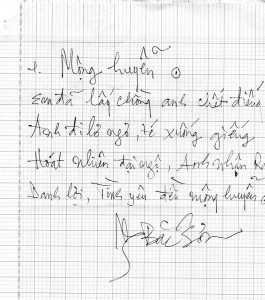 1. Mộng huyễn
Em đã lấy chồng anh chết điếng
Anh đi lỡ ngỡ, té xuống giếng
Hoát nhiên đại ngộ, Anh nhận R
Danh lợi, Tình yêu đều mộng huyễn
Bắc Sơn